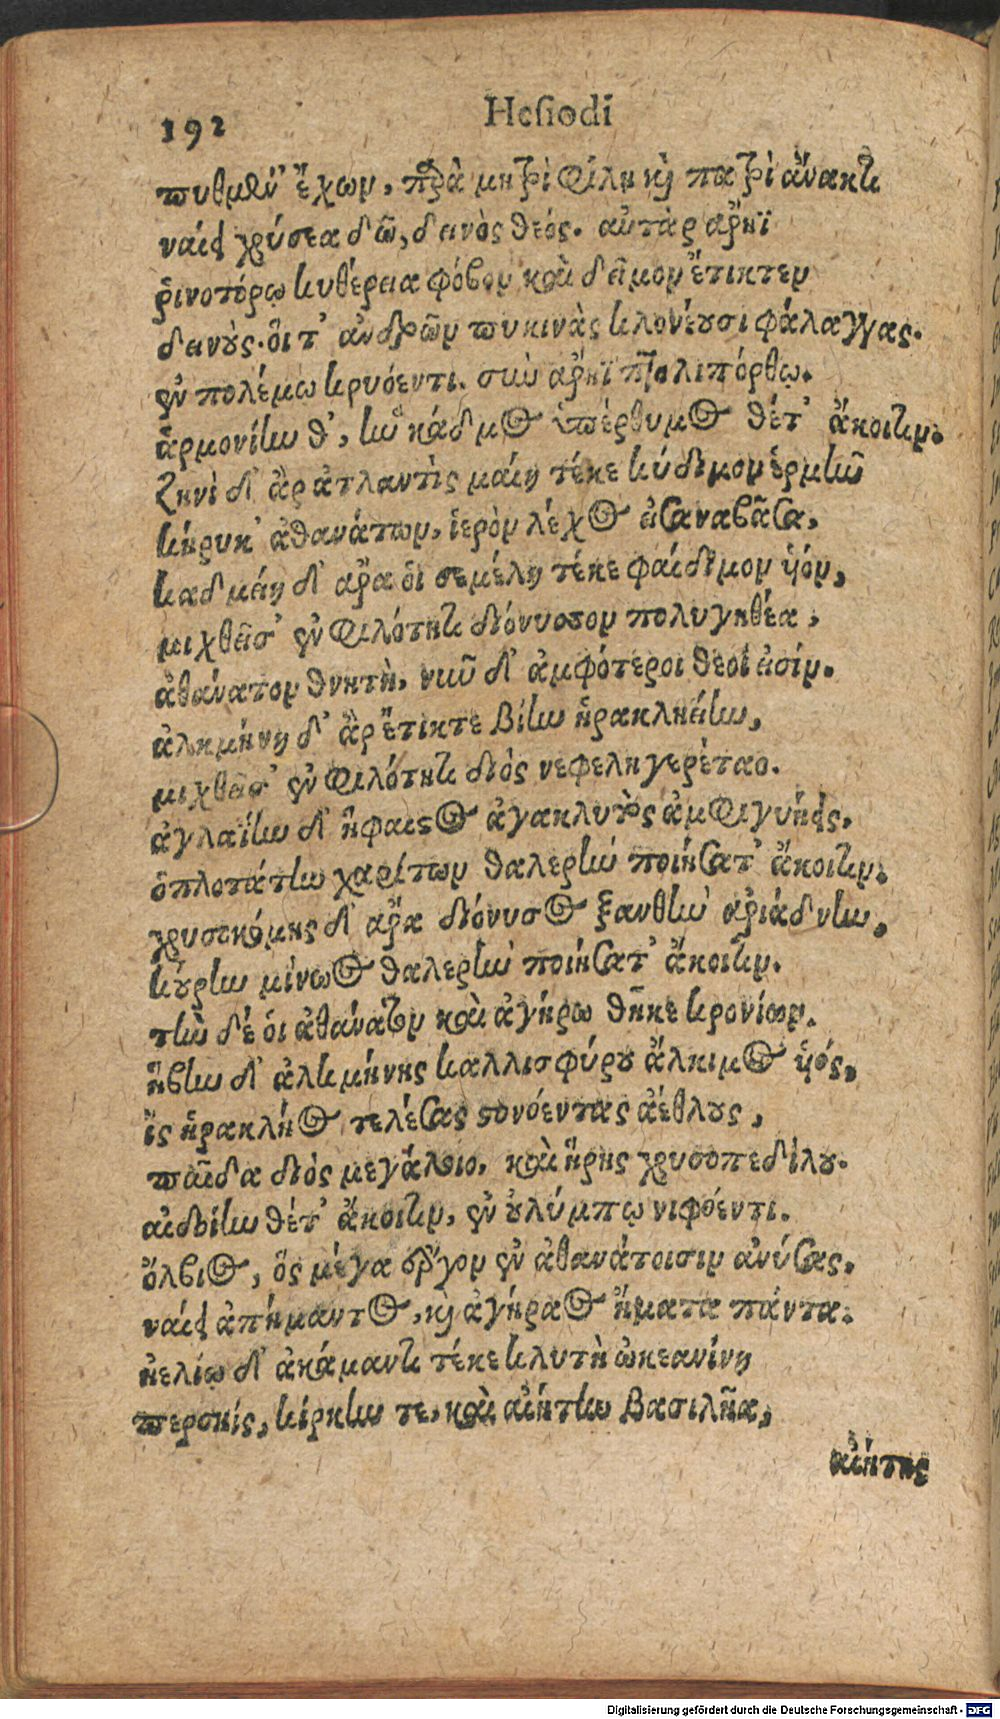 192
Hesiodi
πυθμέν' ἔχων, παρὰ μητρὶ φίλῃ καὶ πατρὶ ἄνακτι
ναίει χρύσεα δῶ, δεινὸς θεός. αὐτὰρ ἄρηϊ
ῥινοτόρῳ κυθέρεια φόβον καὶ δεῖμον ἔτικτεν
δεινούς. οἵ τ' ἀνδρῶν πυκινὰς κλονέουσι φάλαγγας.
ἐν πολέμῳ κρυόεντι. σὺν ἄρηϊ πτολιπόρθῳ.
ἁρμονίην θ', ἣν κάδμος ὑπέρθυμος θέτ' ἄκοιτιν.
ζηνὶ δ' ἂρ ἀτλαντὶς μαίη τέκε κύδιμον ἑρμῆν
κήρυκ' ἀθανάτων, ἱερὸν λέχος εἰσαναβᾶσα,
καδμείη δ' ἄρα οἱ σεμέλη τέκε φαίδιμον υἱόν,
μιχθεῖσ' ἐν φιλότητι διόνυσον πολυγηθέα,
ἀθάνατον θνητὴ, νῦν δ' ἀμφότεροι θεοί εἰσίν.
ἀλκμήνη δ' ἂρ ἔτικτε βίην ἡρακληείην,
μιχθεῖσ' ἐν φιλότητι διός νεφεληγερέταο.
ἀγλαΐην δ' ἥφαιστος ἀγακλυτὸς ἀμφιγυήεις.
ὁπλοτάτην χαρίτων θαλερὴν ποιήσατ' ἄκοιτιν.
χρυσοκόμης δ' ἄρα διόνυσος ξανθὴν ἀριάδνην,
κούρην μίνωος θαλερὴν ποιήσατ' ἄκοιτιν.
τὴν δέ οἱ ἀθάνατον καὶ ἀγήρω θῆκε κρονίων.
ἥβην δ' ἀλκμήνης καλλισφύρου ἄλκιμος υἱός,
ἲς ἡρακλῆος τελέσας στονόεντας ἀέθλους,
παῖδα διός μεγάλοιο, καὶ ἥρης χρυσοπεδίλου.
αἰδοίην θέτ' ἄκοιτιν, ἐν οὐλύμπῳ νιφόεντι.
ὄλβιος, ὃς μέγα ἔργον ἐν ἀθανάτοισιν ἀνύσας.
ναίει ἀπήμαντος, καὶ ἀγήραος ἤματα πάντα.
ἠελίῳ δ' ἀκάμαντι τέκε κλυτὴ ὠκεανίνη
περσηίς, κίρκην τε, καὶ αἰήτην βασιλῆα,
αἰήτης
Digitalisierung gefördert durch die Deutsche Forschungsgemeinschaft - DFG